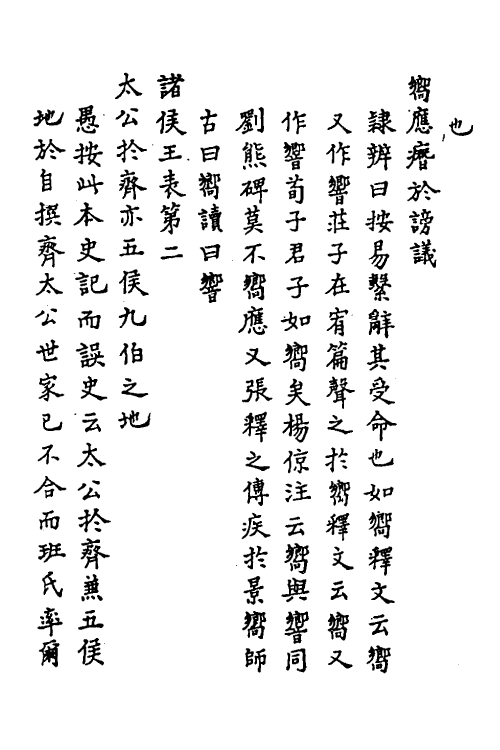 也
嚮應瘠於謗議
隷辨曰按易繫辭其受命也如嚮釋文云嚮
又作響莊子在宥篇聲之於嚮釋文云嚮又
作響荀子君子如嚮矣楊倞注云嚮與響同
劉熊碑莫不嚮應又張釋之傳疾於景嚮師
古曰嚮讀曰響
諸侯王表第二
太公於齊亦五侯九伯之地
愚按此本史記而誤史云太公於齊兼五侯
地於自撰齊太公世家已不合而班氏率爾